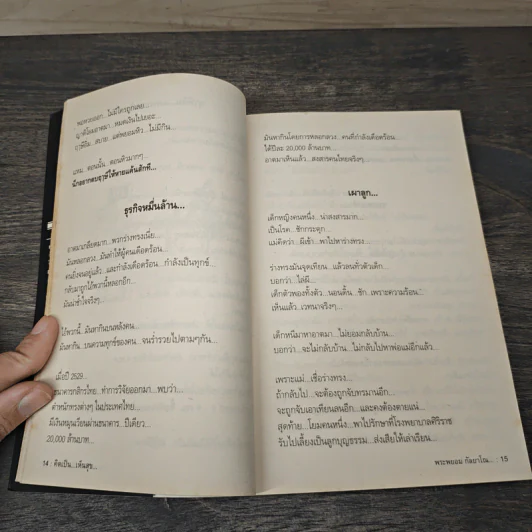 พอหวยออก...ไม่มีใครถูกเลย...
ญาติโยมอาตมา...หมดเงินไปเยอะ...
ฤๅษีอิ่ม...สบาย...แต่พยอมหิว...ไม่มีกิน...
แหม...ตอนนั้น...ตอนหิวมากๆ...
นึกอยากตบฤๅษีให้หายแค้นสักที...
ธุรกิจหมื่นล้าน...
อาตมาเกลียดมาก...พวกร่างทรงเนี่ย...
มันหลอกลวง...มันทำให้ผู้คนเดือดร้อน...
คนยิ่งจนอยู่แล้ว...และกำลังเดือดร้อน...กำลังเป็นทุกข์...
กลับมาถูกไอ้พวกนี้หลอกอีก...
มันน่าช้ำใจจริงๆ...
ไอ้พวกนี้...มันหากินบนหลังคน...
มันหากิน...บนความทุกข์ของคน...จนร่ำรวยไปตามๆกัน...
เมื่อปี 2529...
ธนาคารกสิกรไทย...ทำการวิจัยออกมา...พบว่า...
ตำหนักทรงต่างๆ ในประเทศไทย...
มีเงินหมุนเวียนผ่านธนาคาร...ปีเดียว...
20,000 ล้านบาท...
14 : คิดเป็น...เห็นสุข...
มันหากินโดยการหลอกลวง...คนที่กำลังเดือดร้อน...
ได้ปีละ 20,000 ล้านบาท...
อาตมาเห็นแล้ว...สงสารคนไทยจริงๆ...
เผาลูก...
เด็กหญิงคนหนึ่ง...น่าสงสารมาก...
เป็นโรค...ชักกระตุก...
แม่คิดว่า...ผีเข้า...พาไปหาร่างทรง...
ร่างทรงมันจุดเทียน...แล้วลนทั่วตัวเด็ก...
บอกว่า...ไล่ผี...
เด็กตัวพองทั้งตัว...นอนดิ้น...ชัก..เพราะความร้อน...
เห็นแล้ว...เวทนาจริงๆ...
เด็กหนีมาหาอาตมา...ไม่ยอมกลับบ้าน...
บอกว่า...จะไม่กลับบ้าน...ไม่กลับไปหาพ่อแม่อีกแล้ว...
เพราะแม่...เชื่อร่างทรง...
ถ้ากลับไป...จะต้องถูกจับทรมานอีก...
จะถูกจับเอาเทียนลนอีก...และคงต้องตายแน่...
สุดท้าย...โยมคนหนึ่ง...พาไปรักษาที่โรงพยาบาลศิริราช
รับไปเลี้ยงเป็นลูกบุญธรรม...ส่งเสียให้เล่าเรียน...
พระพยอม กัลยาโณ... : 15